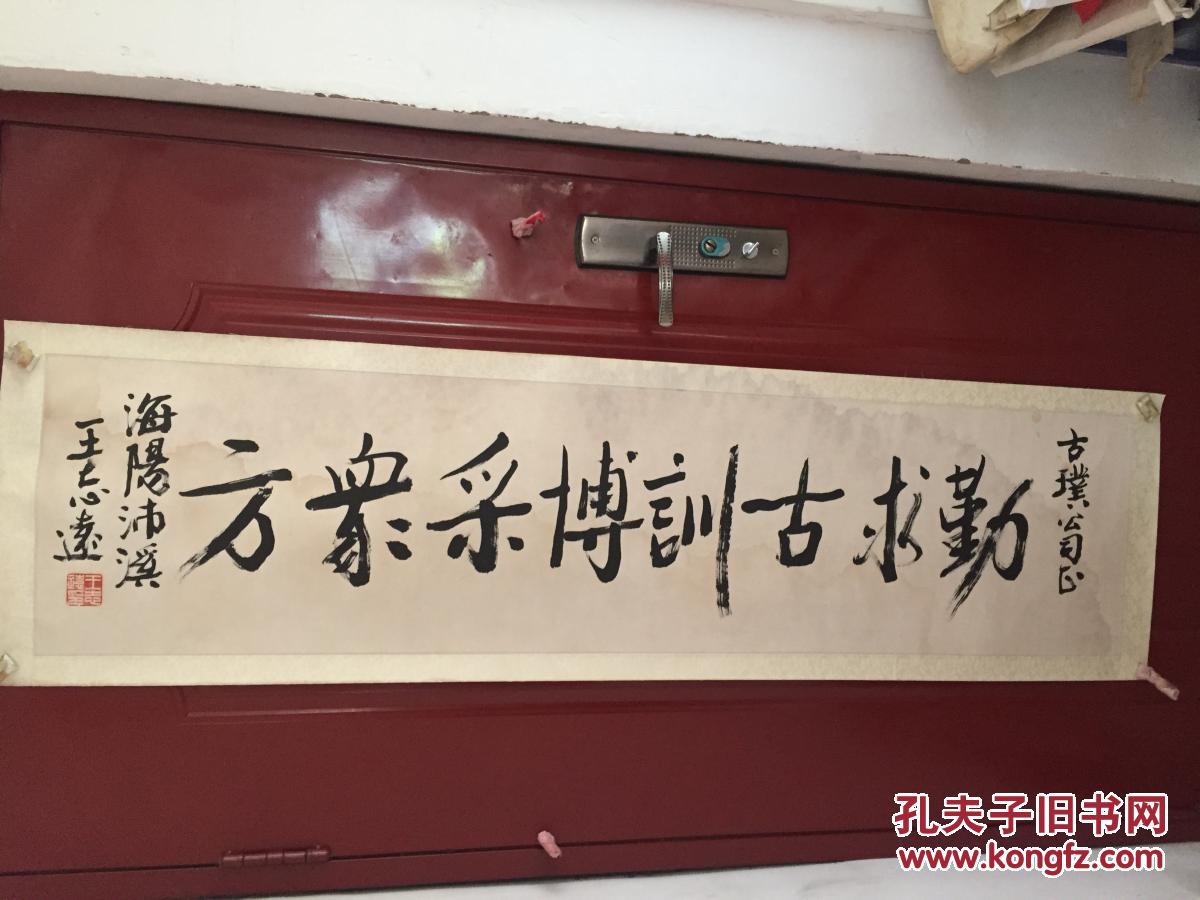 古璞公司正
勤求古訓博采衆方
海陽沛溪
王志遠
孔夫子旧书网
www.kongfz.com